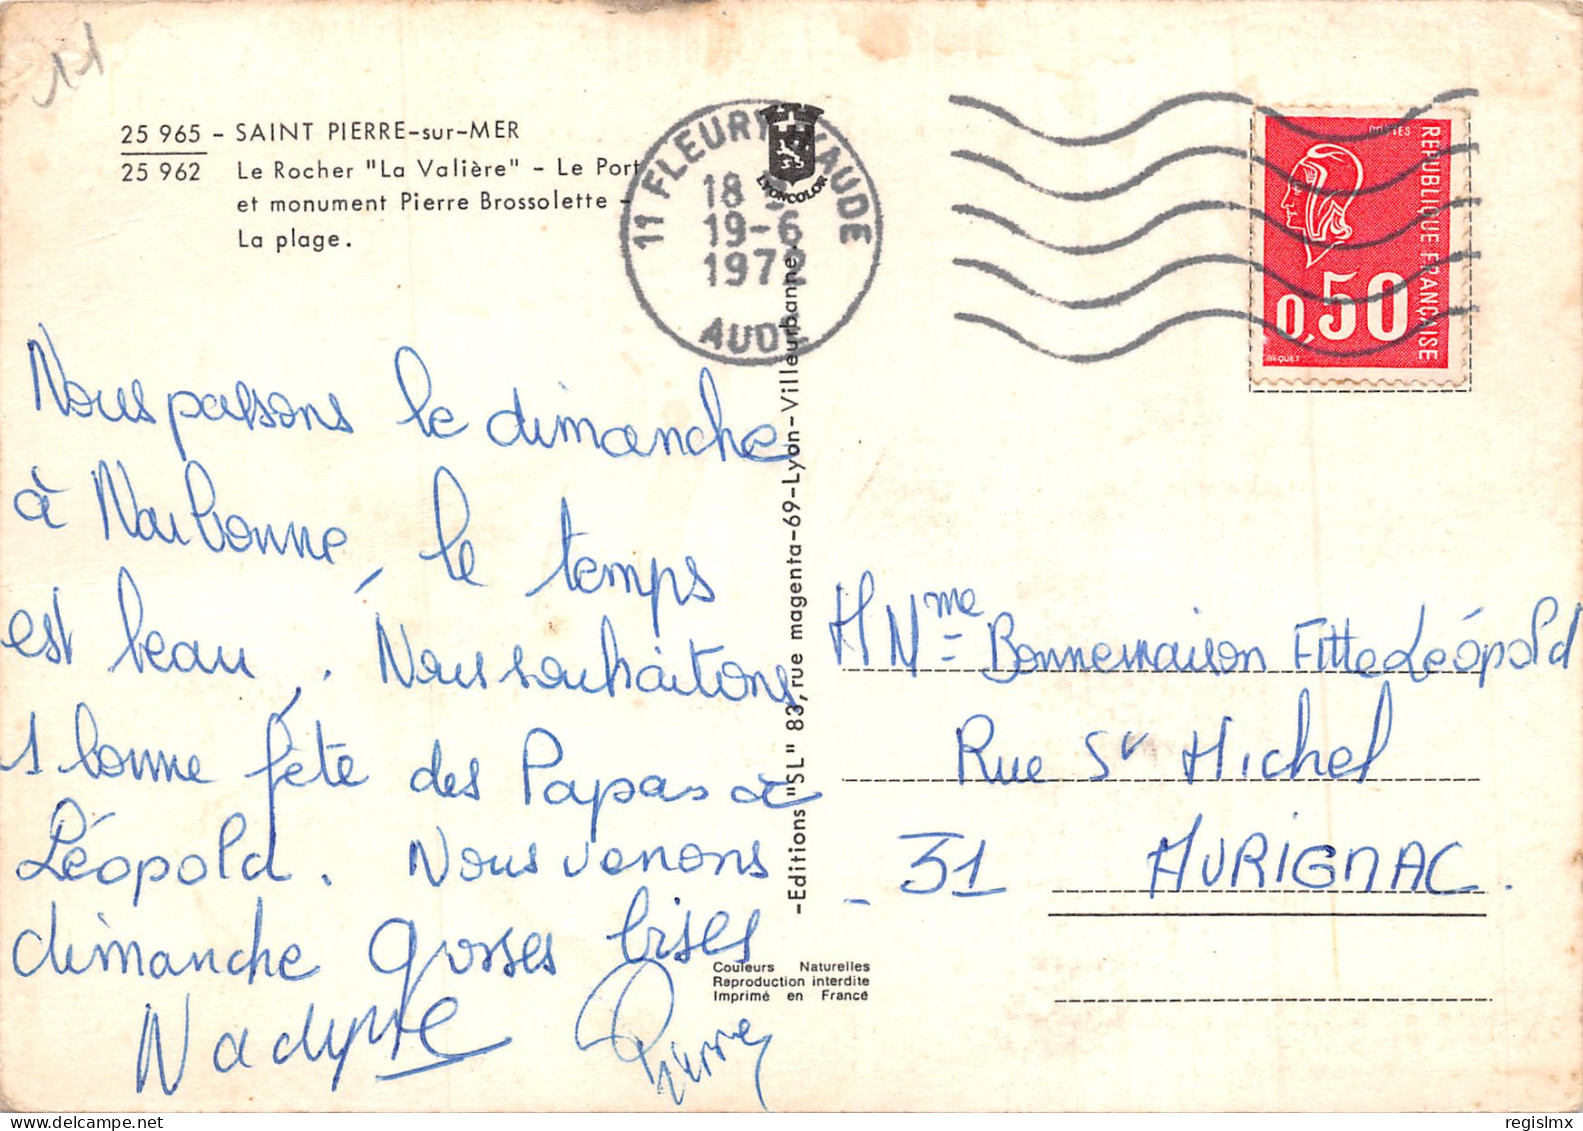 11
25 965 - SAINT PIERRE-sur-MER
25 962 Le Rocher "La Valière" - Le Port
et monument Pierre Brossolette -
La plage.
11 FLEURY D'AUDE
18 H
19-6
1972
AUDE
LYONCOLOR
POSTES
REPUBLIQUE FRANÇAISE
0,50
BEQUET
Nous passons le dimanche
à Narbonne, le temps
est beau. Nous souhaitons
1 bonne fête des Papas à
Léopold. Nous venons
dimanche grosses bises
Nadyne Pierre
-Editions "SL" 83, rue magenta-69-Lyon-Villeurbanne-
Couleurs Naturelles
Reproduction interdite
Imprimé en France
M Mme Bonnemaison Fitte Léopold
Rue St Michel
- 31 AURIGNAC.
regislmx